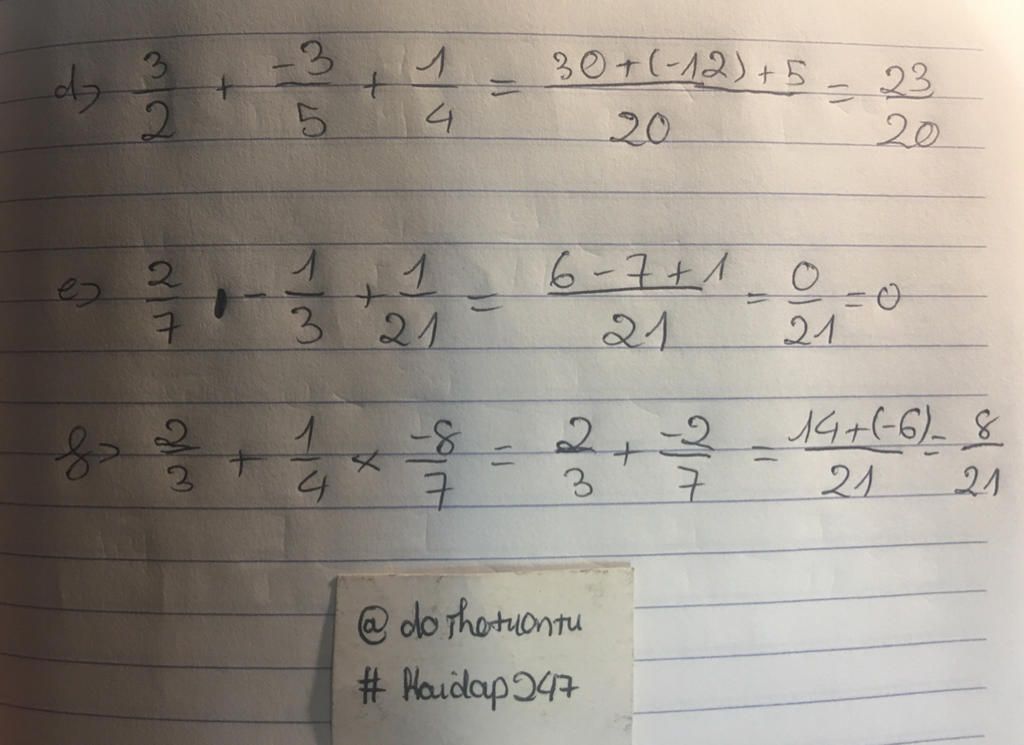 d> 3/2 + -3/5 + 1/4 = 30+(-12)+5/20 = 23/20
e> 2/7 - 1/3 + 1/21 = 6-7+1/21 = 0/21 = 0
g> 2/3 + 1/4 × -8/7 = 2/3 + -2/7 = 14+(-6)/21 = 8/21
# Hoidap247